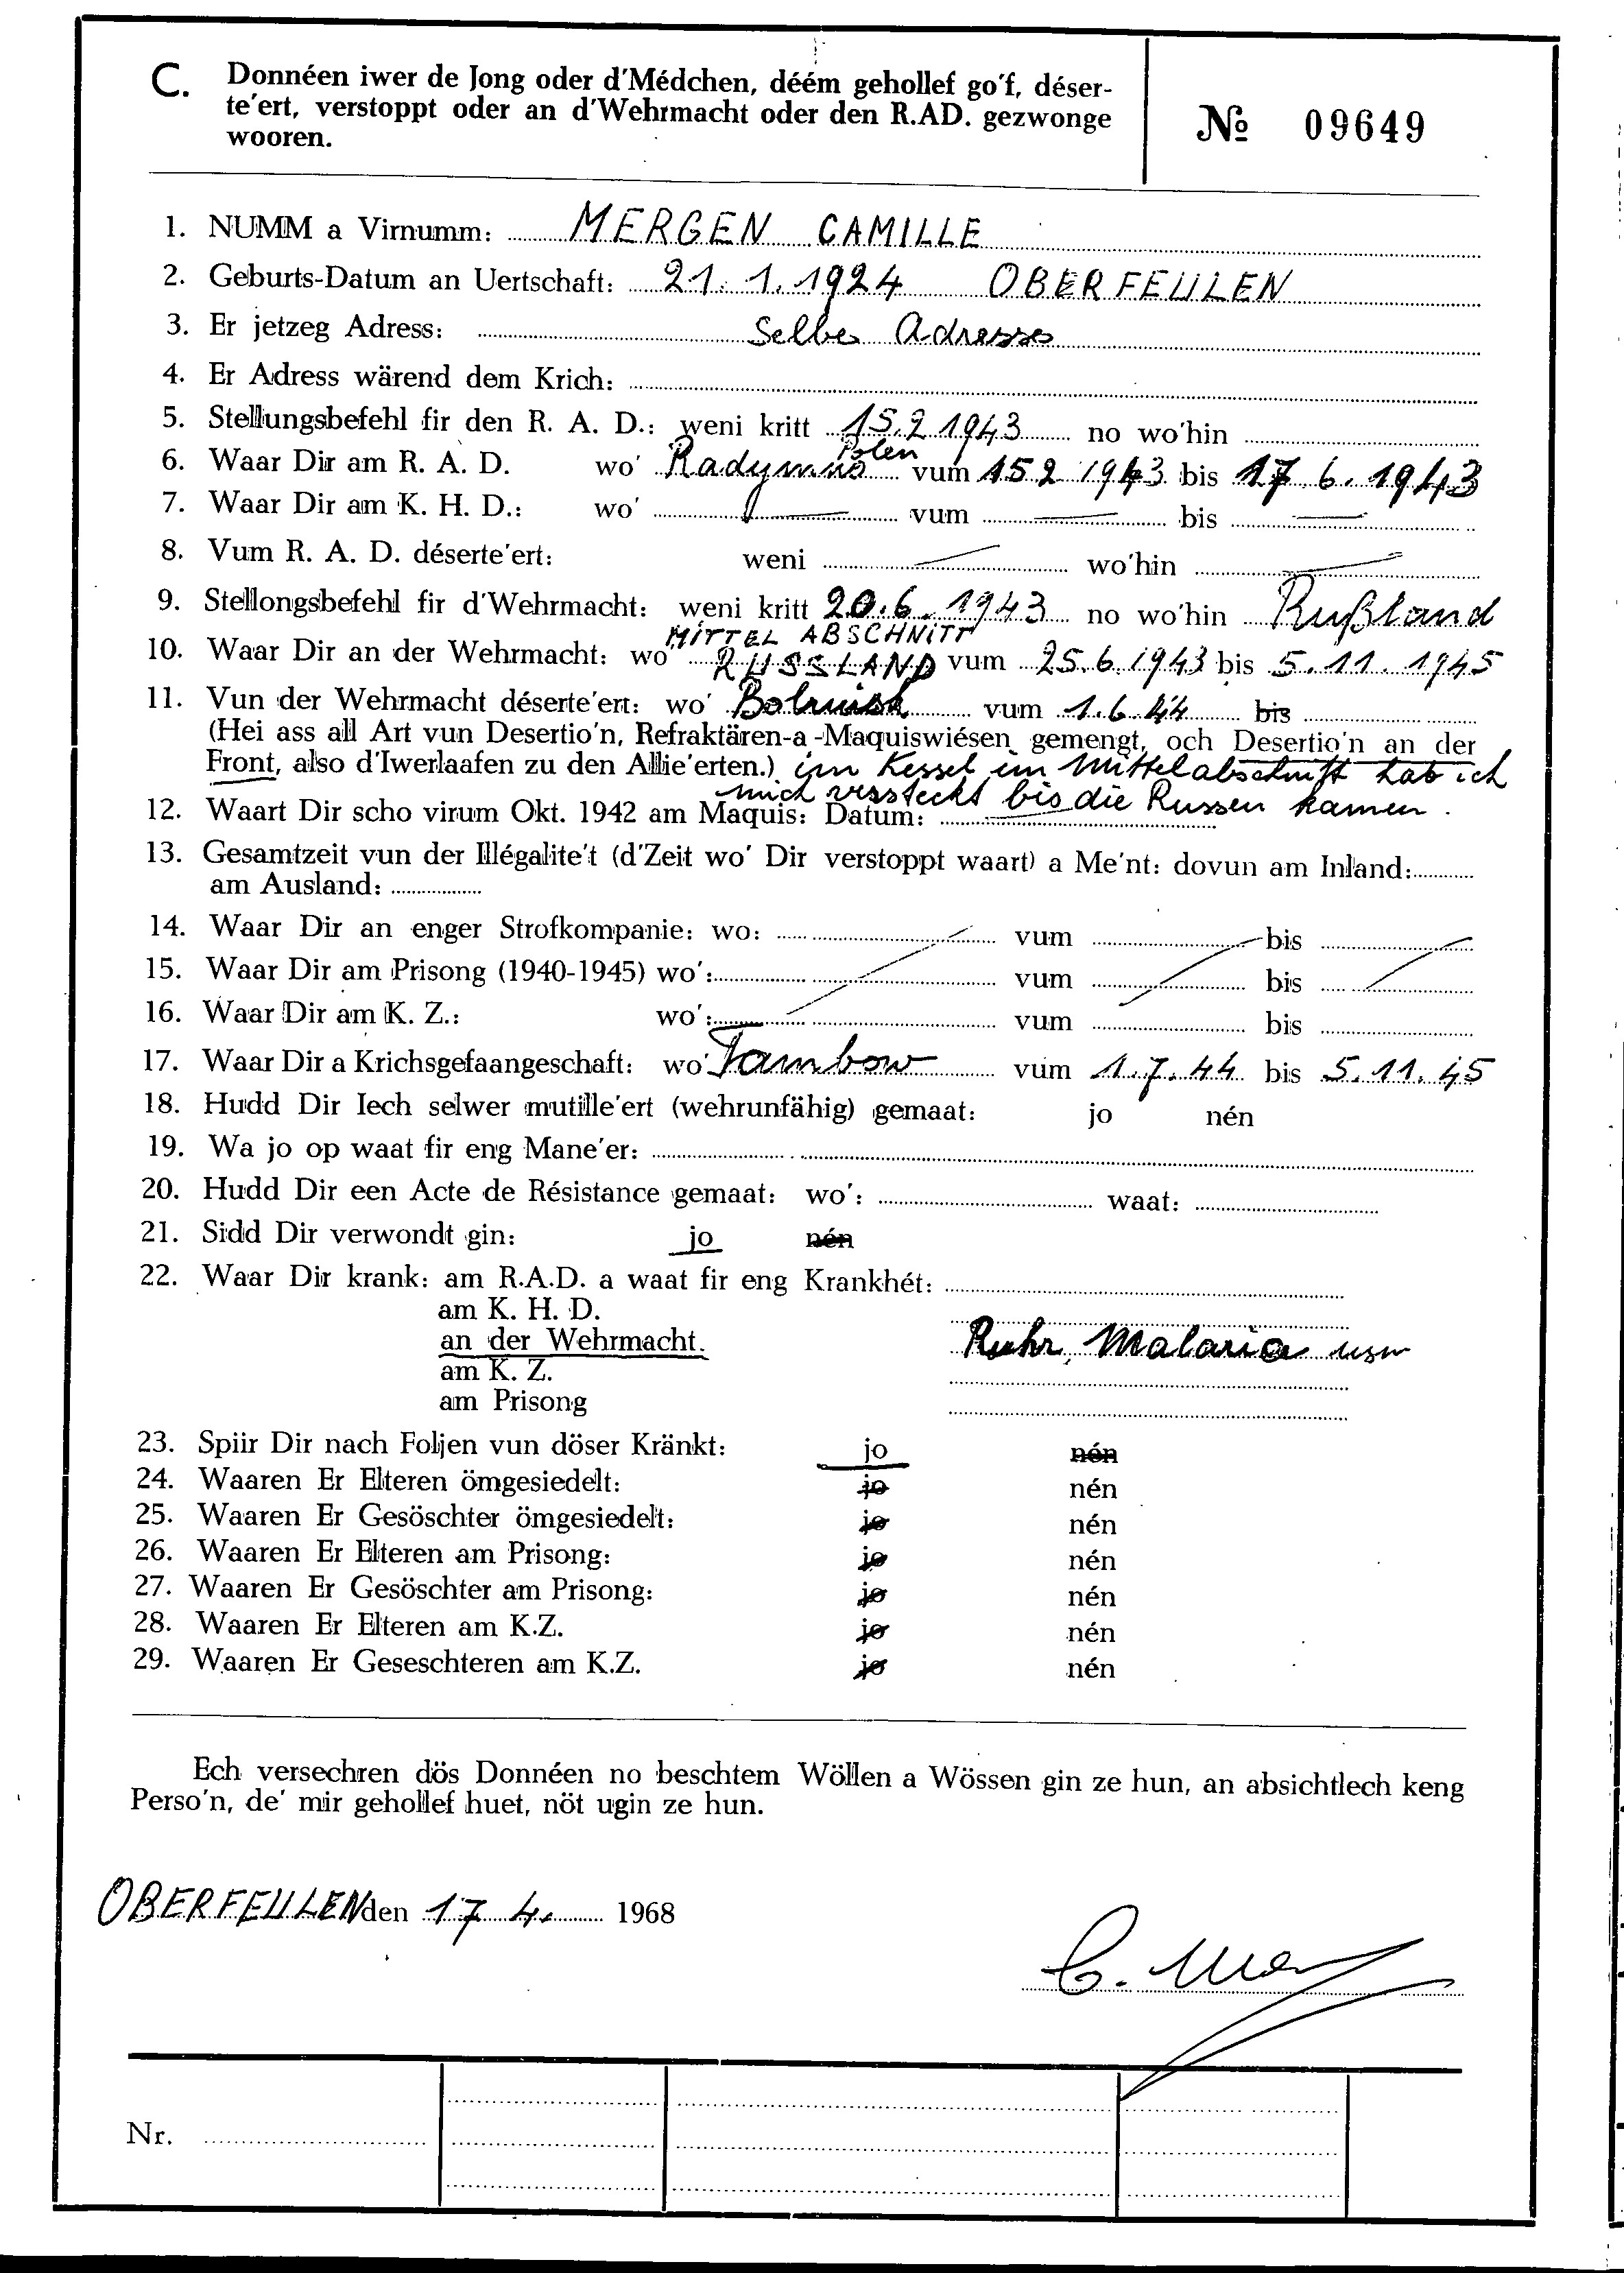 C. Donnéen iwer de Jong oder d'Médchen, déém gehollef go'f, déser-
te'ert, verstoppt oder an d'Wehrmacht oder den R.AD. gezwonge
wooren.
№ 09649
1. NUMM a Virnumm: MERGEN CAMILLE
2. Geburts-Datum an Uertschaft: 21. 1. 1924 OBERFEULEN
3. Er jetzeg Adress: Selbe Adresse
4. Er Adress wärend dem Krich:
5. Stellungsbefehl fir den R. A. D.: weni kritt 15.2 1943 no wo'hin
Polen
6. Waar Dir am R. A. D. wo' Radymno vum 15 2 1943 bis 17.6.1943
7. Waar Dir am K. H. D.: wo' vum bis
8. Vum R. A. D. déserte'ert: weni wo'hin
9. Stellongsbefehl fir d'Wehrmacht: weni kritt 20.6.1943 no wo'hin Rußland
MITTEL ABSCHNITT
10. Waar Dir an der Wehrmacht: wo' RUSSLAND vum 25.6.1943 bis 5.11.1945
11. Vun der Wehrmacht déserte'ert: wo' Bobruisk vum 1.6.44 bis
(Hei ass all Art vun Desertio'n, Refraktären-a-Maquiswiésen gemengt, och Desertio'n an der
Front, also d'Iwerlaafen zu den Allie'erten.) im Kessel im Mittelabschnitt hab ich
mich versteckt bis die Russen kamen.
12. Waart Dir scho virum Okt. 1942 am Maquis: Datum:
13. Gesamtzeit vun der Illégalite't (d'Zeit wo' Dir verstoppt waart) a Me'nt: dovun am Inland:
am Ausland:
14. Waar Dir an enger Strofkompanie: wo: vum bis
15. Waar Dir am Prisong (1940-1945) wo': vum bis
16. Waar Dir am K. Z.: wo': vum bis
17. Waar Dir a Krichsgefaangeschaft: wo' Tambow vum 1.7.44 bis 5.11.45
18. Hudd Dir Iech selwer mutille'ert (wehrunfähig) gemaat: jo nén
19. Wa jo op waat fir eng Mane'er:
20. Hudd Dir een Acte de Résistance gemaat: wo': waat:
21. Sidd Dir verwondt gin: jo nén
22. Waar Dir krank: am R.A.D. a waat fir eng Krankhét:
am K. H. D.
an der Wehrmacht. Ruhr, Malaria usw
am K. Z.
am Prisong
23. Spiir Dir nach Foljen vun döser Kränkt: jo nén
24. Waaren Er Elteren ömgesiedelt: jo nén
25. Waaren Er Gesöschter ömgesiedelt: jo nén
26. Waaren Er Elteren am Prisong: jo nén
27. Waaren Er Gesöschter am Prisong: jo nén
28. Waaren Er Elteren am K.Z. jo nén
29. Waaren Er Geseschteren am K.Z. jo nén
Ech versechren dös Donnéen no beschtem Wöllen a Wössen gin ze hun, an absichtlech keng
Perso'n, de' mir gehollef huet, nöt ugin ze hun.
OBERFEULEN den 17 4. 1968
Nr.